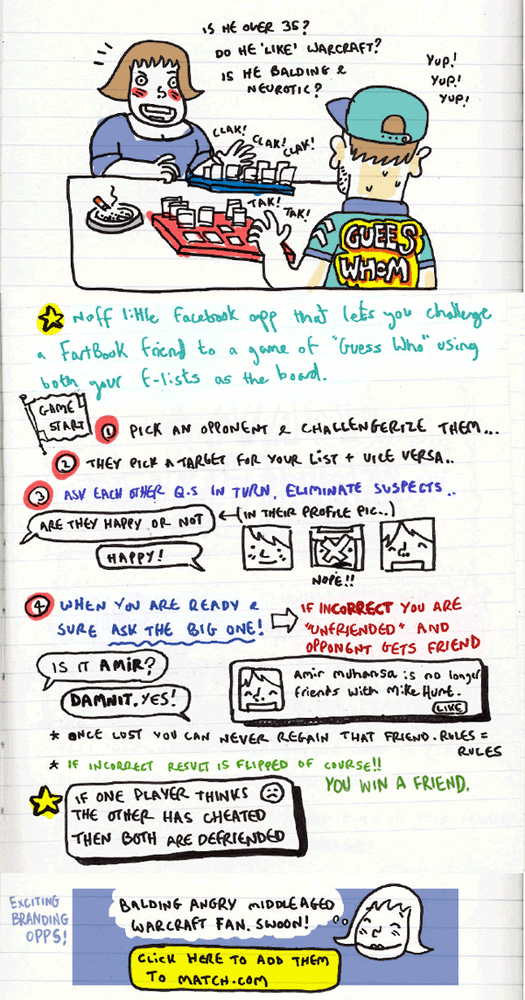 IS HE OVER 35?
DO HE 'LIKE' WARCRAFT?
IS HE BALDING &
NEUROTIC?
YUP!
YUP!
YUP!
CLAK!
CLAK!
CLAK!
TAK!
TAK!
GUEES
WHOM
Noff little facebook app that lets you challenge
a FartBook friend to a game of "Guess Who" using
both your f-lists as the board.
GAME
START
1 PICK AN OPPONENT & CHALLENGERIZE THEM...
2 THEY PICK A TARGET FOR YOUR LIST + VICE VERSA..
3 ASK EACH OTHER Q.S IN TURN, ELIMINATE SUSPECTS..
ARE THEY HAPPY OR NOT
(IN THEIR PROFILE PIC..)
HAPPY!
NOPE!!
4 WHEN YOU ARE READY &
SURE ASK THE BIG ONE!
IF INCORRECT YOU ARE
"UNFRIENDED" AND
OPPONENT GETS FRIEND
IS IT AMIR?
DAMNIT. YES!
Amir muhansa is no longer
friends with Mike Hunt.
LIKE
* ONCE LOST YOU CAN NEVER REGAIN THAT FRIEND. RULES =
RULES
* IF INCORRECT RESULT IS FLIPPED OF COURSE!!
YOU WIN A FRIEND.
IF ONE PLAYER THINKS
THE OTHER HAS CHEATED
THEN BOTH ARE DEFRIENDED
EXCITING
BRANDING
OPPS!
BALDING ANGRY MIDDLEAGED
WARCRAFT FAN. SWOON!
CLICK HERE TO ADD THEM
TO MATCH.COM